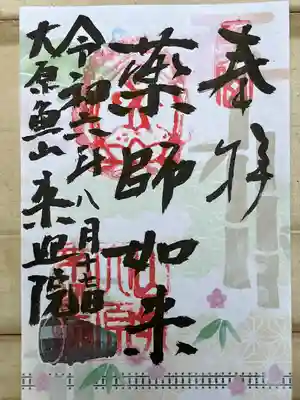 奉拝
薬師如来
令和六年八月
大原魚山 来迎院